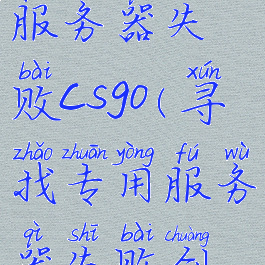 服务器失
bài xún
败CSGO(寻
zhǎo zhuān yòng fú wù
找专用服务
qì shī bài chuàng
器失败创